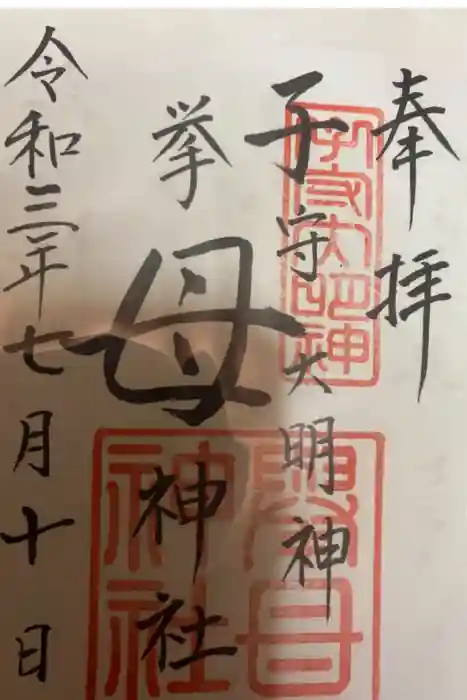 奉拝
子守大明神
子守大明神
挙母神社
擧母神社
令和三年七月十日